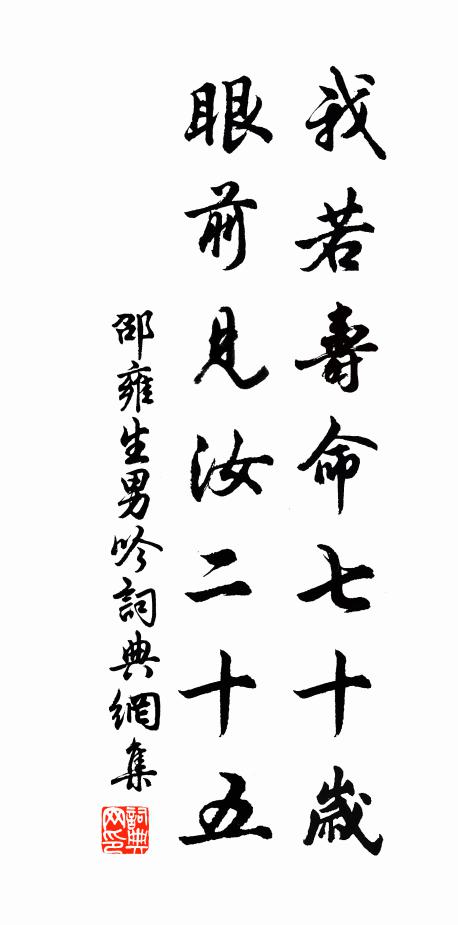 我若壽命七十歲
眼前見汝二十五
邵雍生男吟詞典網集
詞典網印